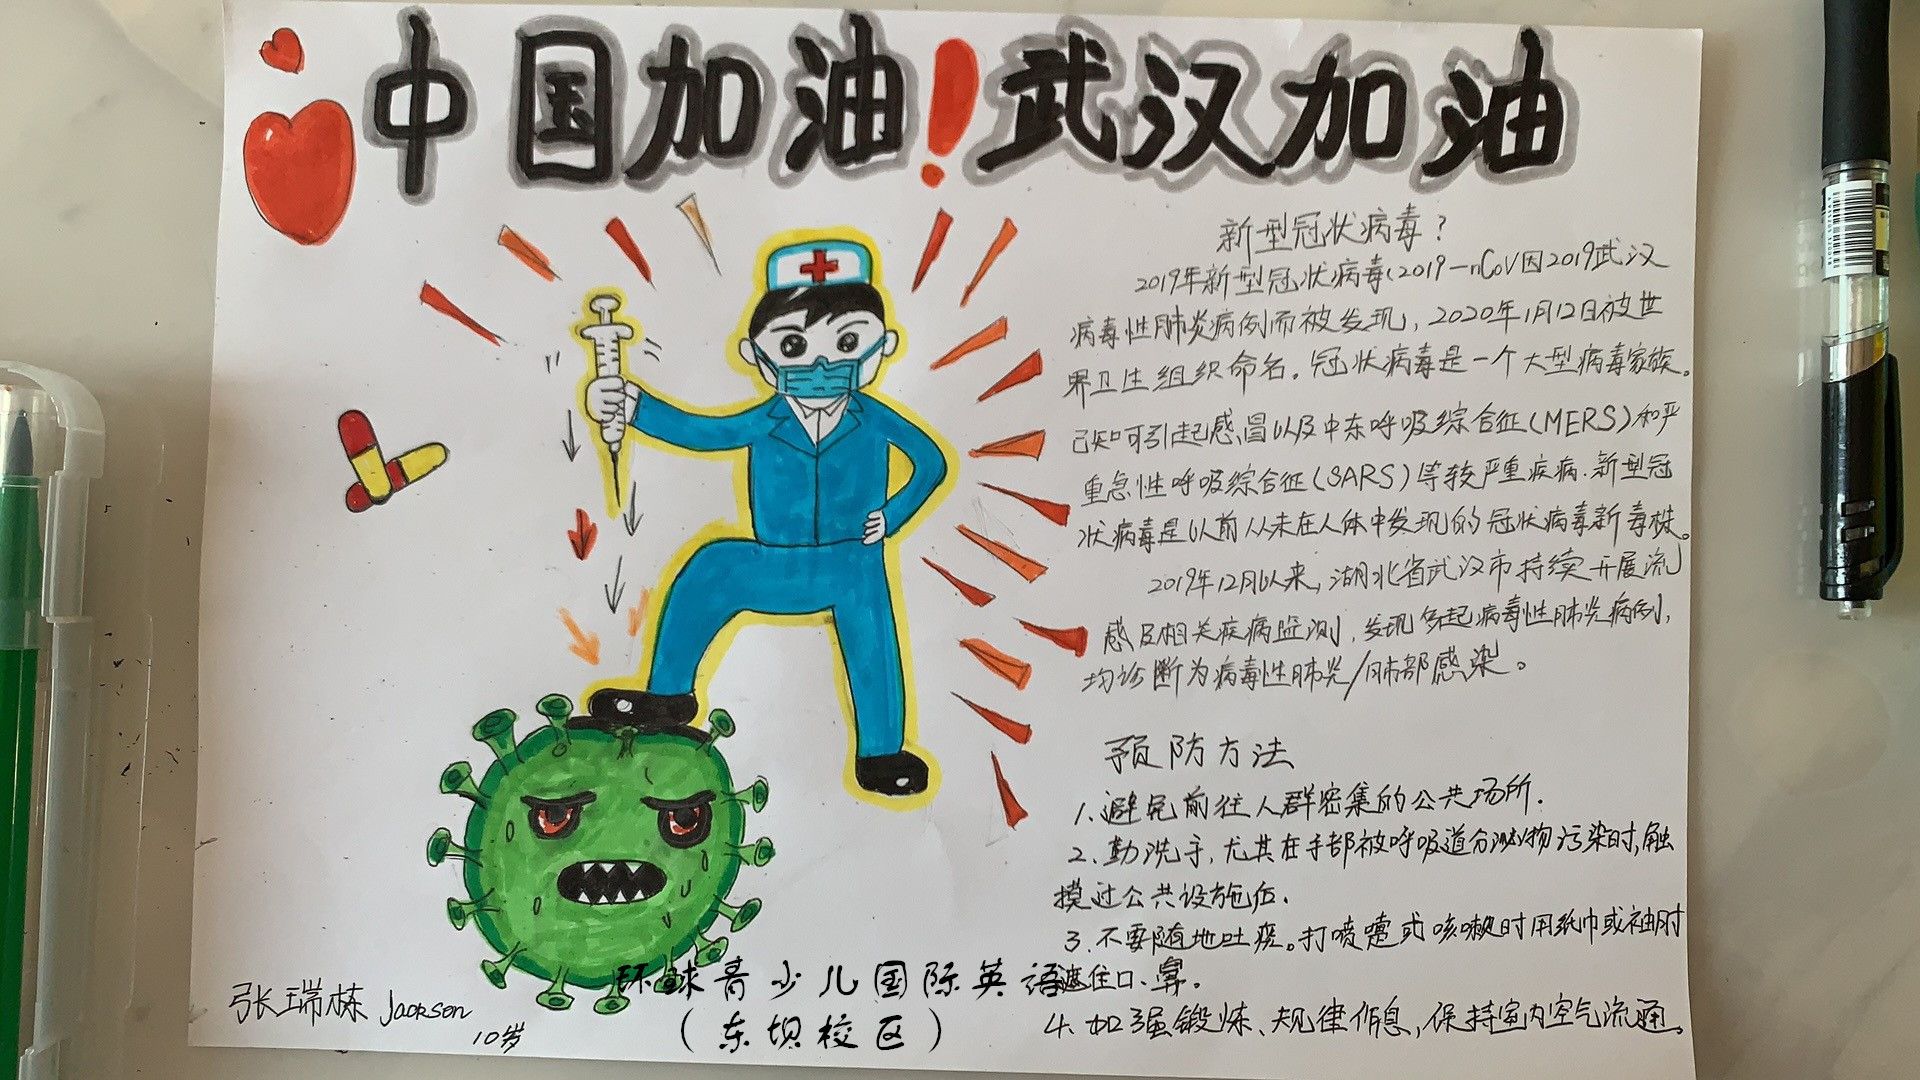 中国加油！武汉加油
新型冠状病毒？
2019年新型冠状病毒(2019-nCoV因2019武汉
病毒性肺炎病例而被发现，2020年1月12日被世
界卫生组织命名。冠状病毒是一个大型病毒家族。
已知可引起感冒以及中东呼吸综合征(MERS)和严
重急性呼吸综合征(SARS)等较严重疾病.新型冠
状病毒是以前从未在人体中发现的冠状病毒新毒株。
2019年12月以来，湖北省武汉市持续开展流
感及相关疾病监测，发现多起病毒性肺炎病例，
均诊断为病毒性肺炎/肺部感染。
预防方法
1.避免前往人群密集的公共场所.
2.勤洗手，尤其在手部被呼吸道分泌物污染时，触
摸过公共设施后.
3.不要随地吐痰。打喷嚏或咳嗽时用纸巾或袖肘
遮住口、鼻。
4.加强锻炼、规律作息，保持室内空气流通。
张瑞栋 Jackson
10岁
环球青少儿国际英语
（东坝校区）